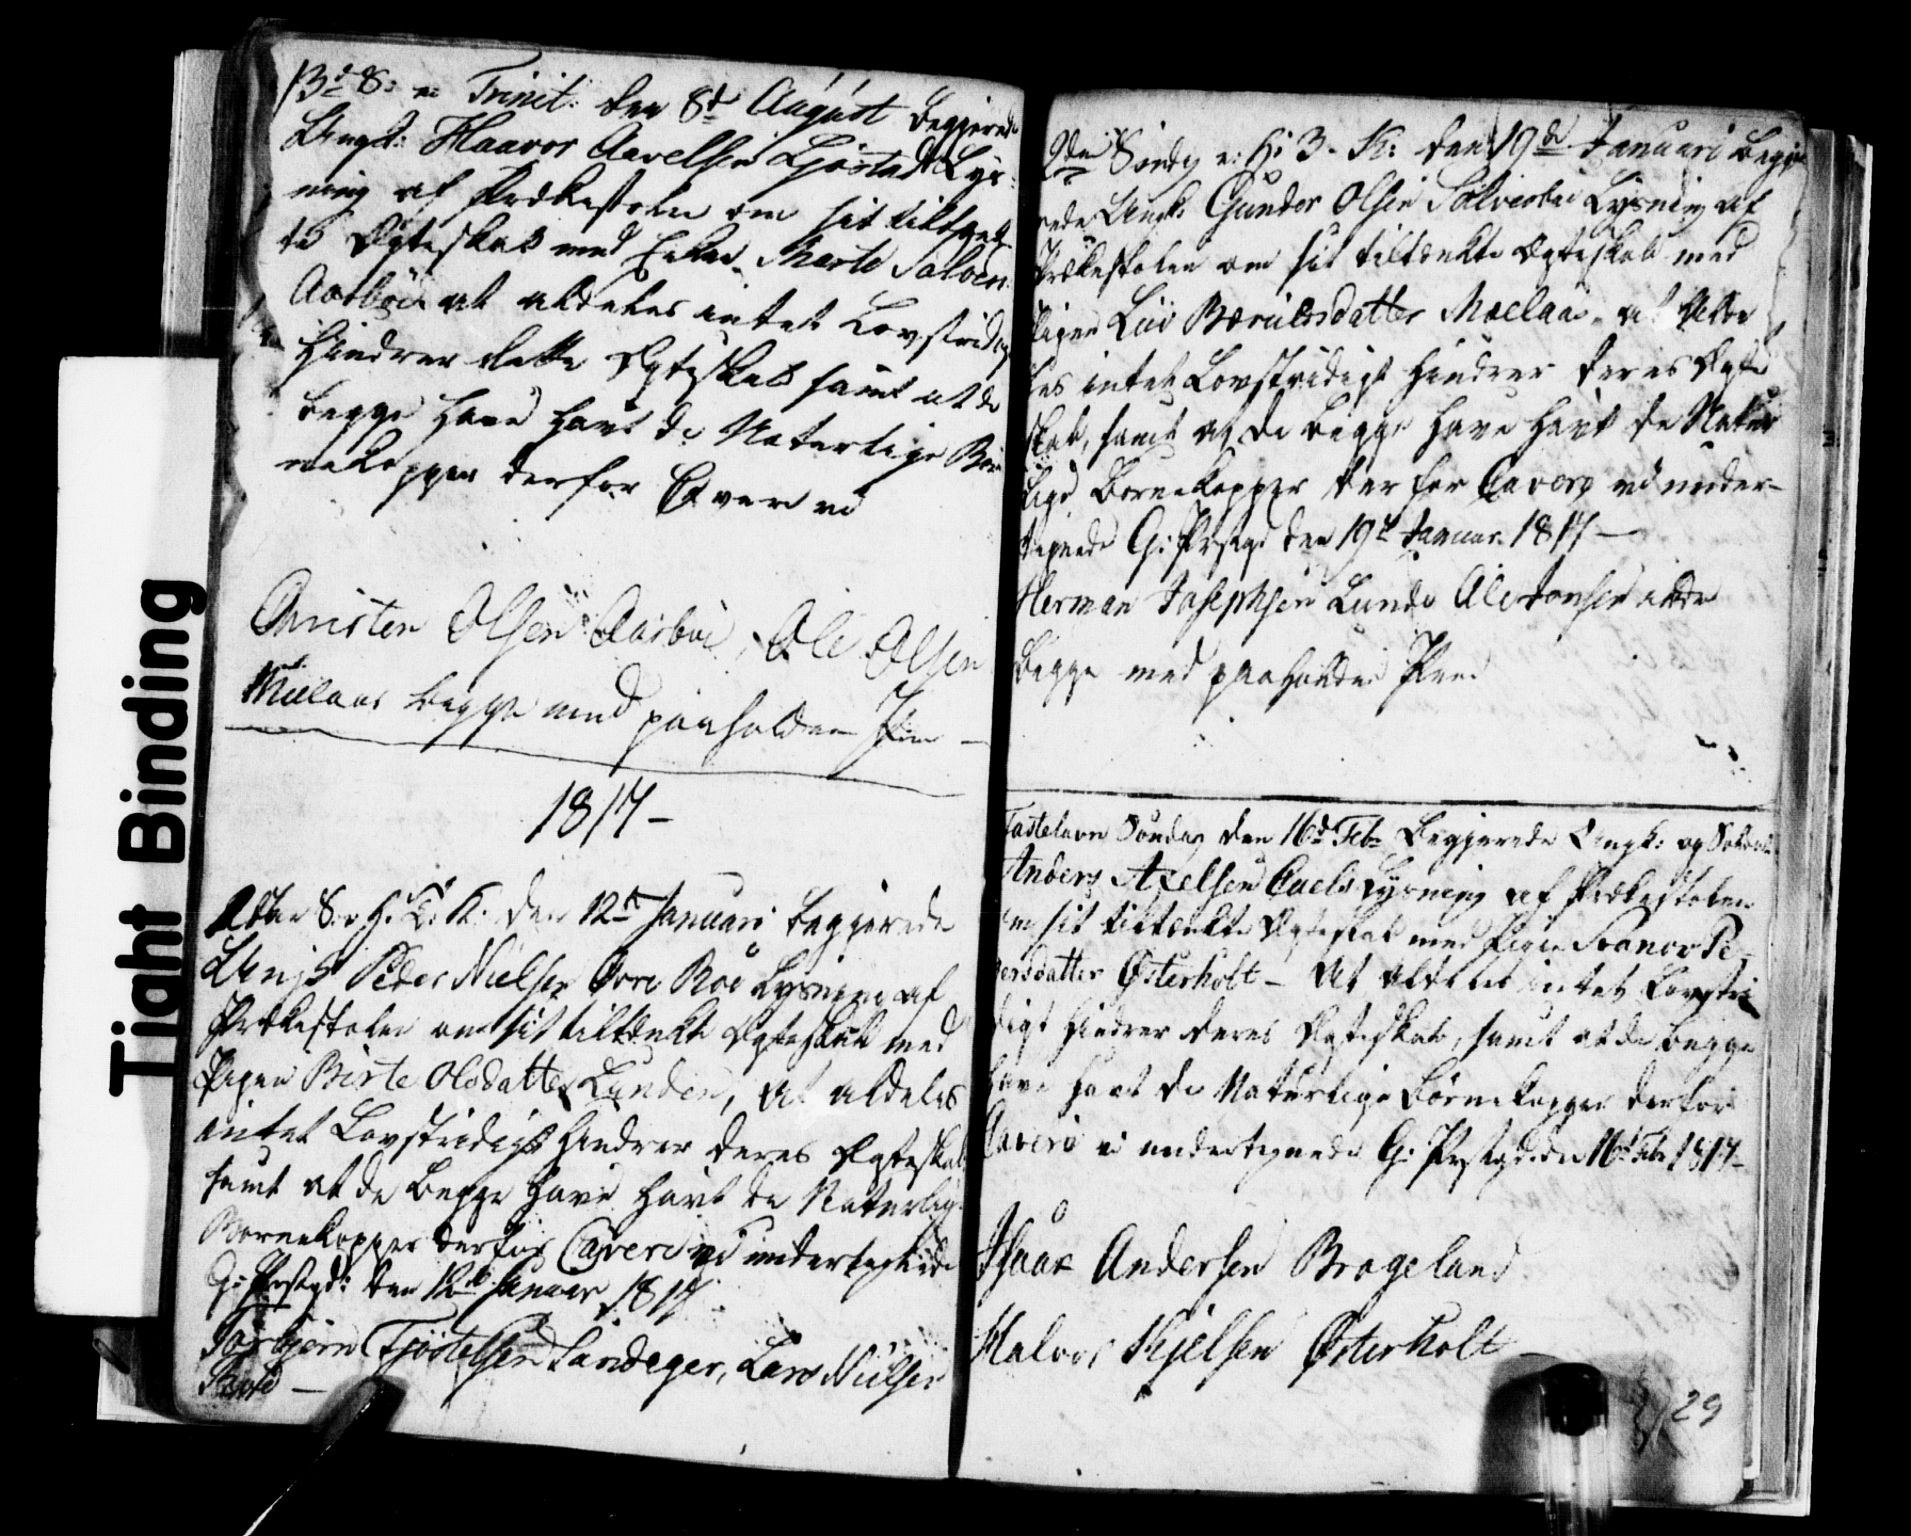 Tight Binding
S: e: Trinit: den 8d August Begjerede
Ungk: Haavor Aavelsen Ljøstad Lys-
ning af Prækestolen om sit tiltænk-
te Ægteskab med Enken Marte
Aasbøe at aldeles intet Lovstridig
Hindrer dette Ægteskab samt at de
begge have havt de Naturlige Bør-
nekopper derfor Cavere vi
Christen Olsen Aasbøe, Ole Olsen
Mælaas begge med paaholden Pen
1817 –
den 12te Januari begjerede
Ungk: Peder Nielsen Øvre Bøe Lysning af
Prækestolen om sit tiltænkte Ægteskab med
Pigen Birte Olsdatter Lunden, at aldeles
intet Lovstridigt Hindrer deres Ægteskab
samt at de begge have havt de Naturlige
Børnekopper derfor Cavere vi undertegnede
G: Præstgd: den 12te Januar 1817.
Torbjørn Tjøstelsen Landeger, Lars Nielsen
2den Søndg e: H: 3 K: den 19de Januari Begje-
rede Ungk: Gunder Olsen Lysning af
Prækestolen om sit tiltænkte Ægteskab med
Pigen Liv Mælaa at Alde-
les intet Lovstridigt Hindrer deres Ægte
skab, samt at de begge have havt de Natur
lige Børnekopper derfor Cavere vi under-
tegnede G: Præstgd den 19d Januar 1817 –
Herman Josephsen Lunde Ole Jonsen
begge med paaholden Pen
Fastelavn Søndag den 16d Feb: Begjerede Ungk: og
Anders Axelsen Lysning af Prækestolen
om sit tiltænkte Ægteskab med Pigen Pe-
dersdatter Østerholt – At Aldeles intet Lovstri
digt Hindrer deres Ægteskab, samt at de begge
have havt de Naturlige Børnekopper derfor
Cavere vi undertegnede G: Præstgd: den 16d Feb: 1817 –
Isaac Andersen Brageland
Halvor Kjelsen Østerholt –
29